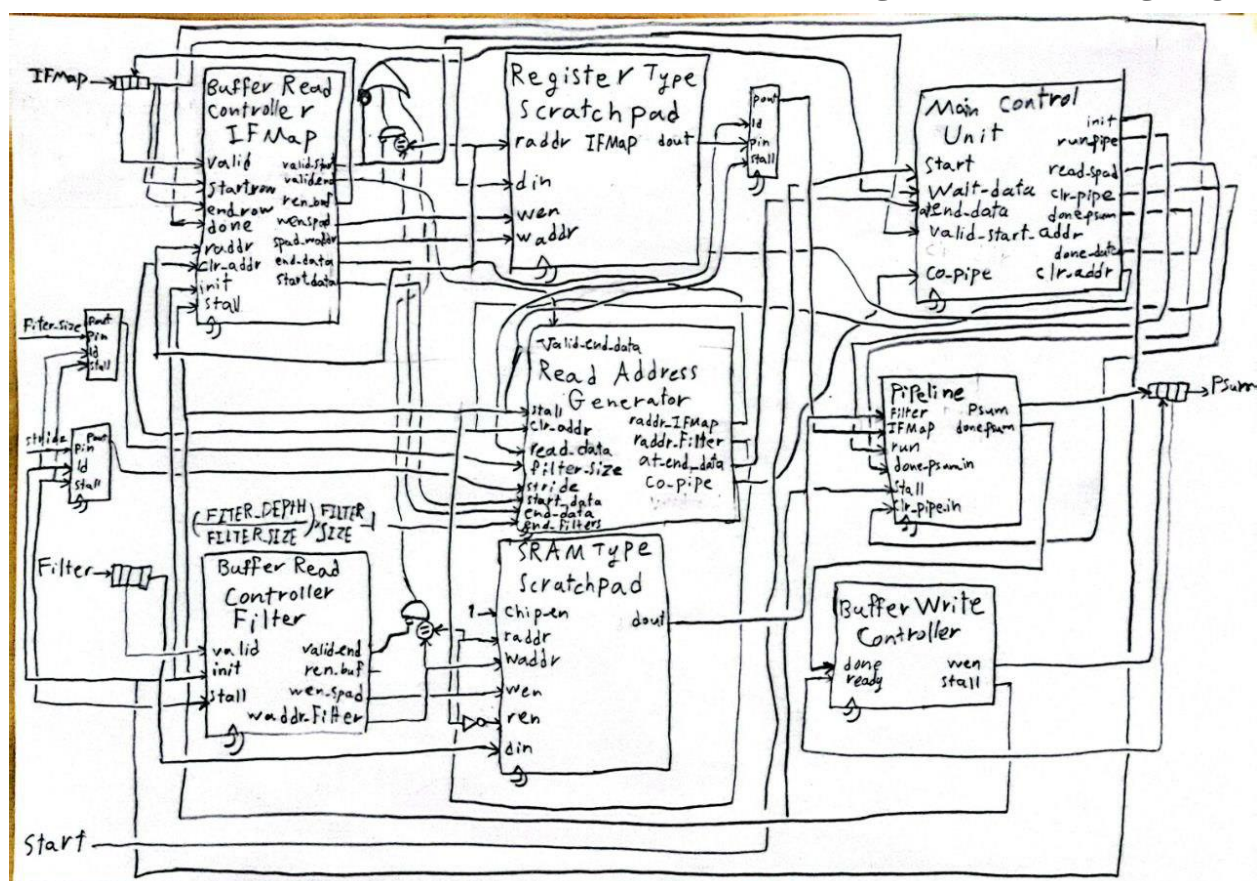 IFMap
Buffer Read
Controller
IFMap
valid
startrow
endrow
done
raddr
clr_addr
init
stall
valid_start
valid_end
ren_buf
wen_spad
spad_waddr
end_data
start_data
Register Type
Scratchpad
raddr IFMap dout
din
wen
waddr
pout
ld
pin
stall
Main Control
Unit
start
wait-data
at_end_data
valid-start-addr
co-pipe
init
run_pipe
read_spad
clr-pipe
done_psum
done_data
clr_addr
Fiter_size
pout
pin
ld
stall
stride
Pout
pin
ld
stall
Valid_end_data
Read Address
Generator
stall
clr_addr
read_data
filter_size
stride
start_data
end_data
end_filters
raddr_IFMap
raddr_Filter
at-end_data
co-pipe
Pipeline
Filter
IFMap
run
done-psum_in
stall
clr_pipe.in
Psum
done_psum
Psum
(FITER_DEPTH
FILTER SIZE) * FILTER
SIZE - 1
Filter
Buffer Read
Controller
Filter
valid
init
stall
valid_end
ren_buf
wen_spad
waddr_Filter
SRAM Type
Scratchpad
1
Chip_en
raddr
waddr
wen
ren
din
dout
Buffer Write
Controller
done
ready
wen
stall
Start